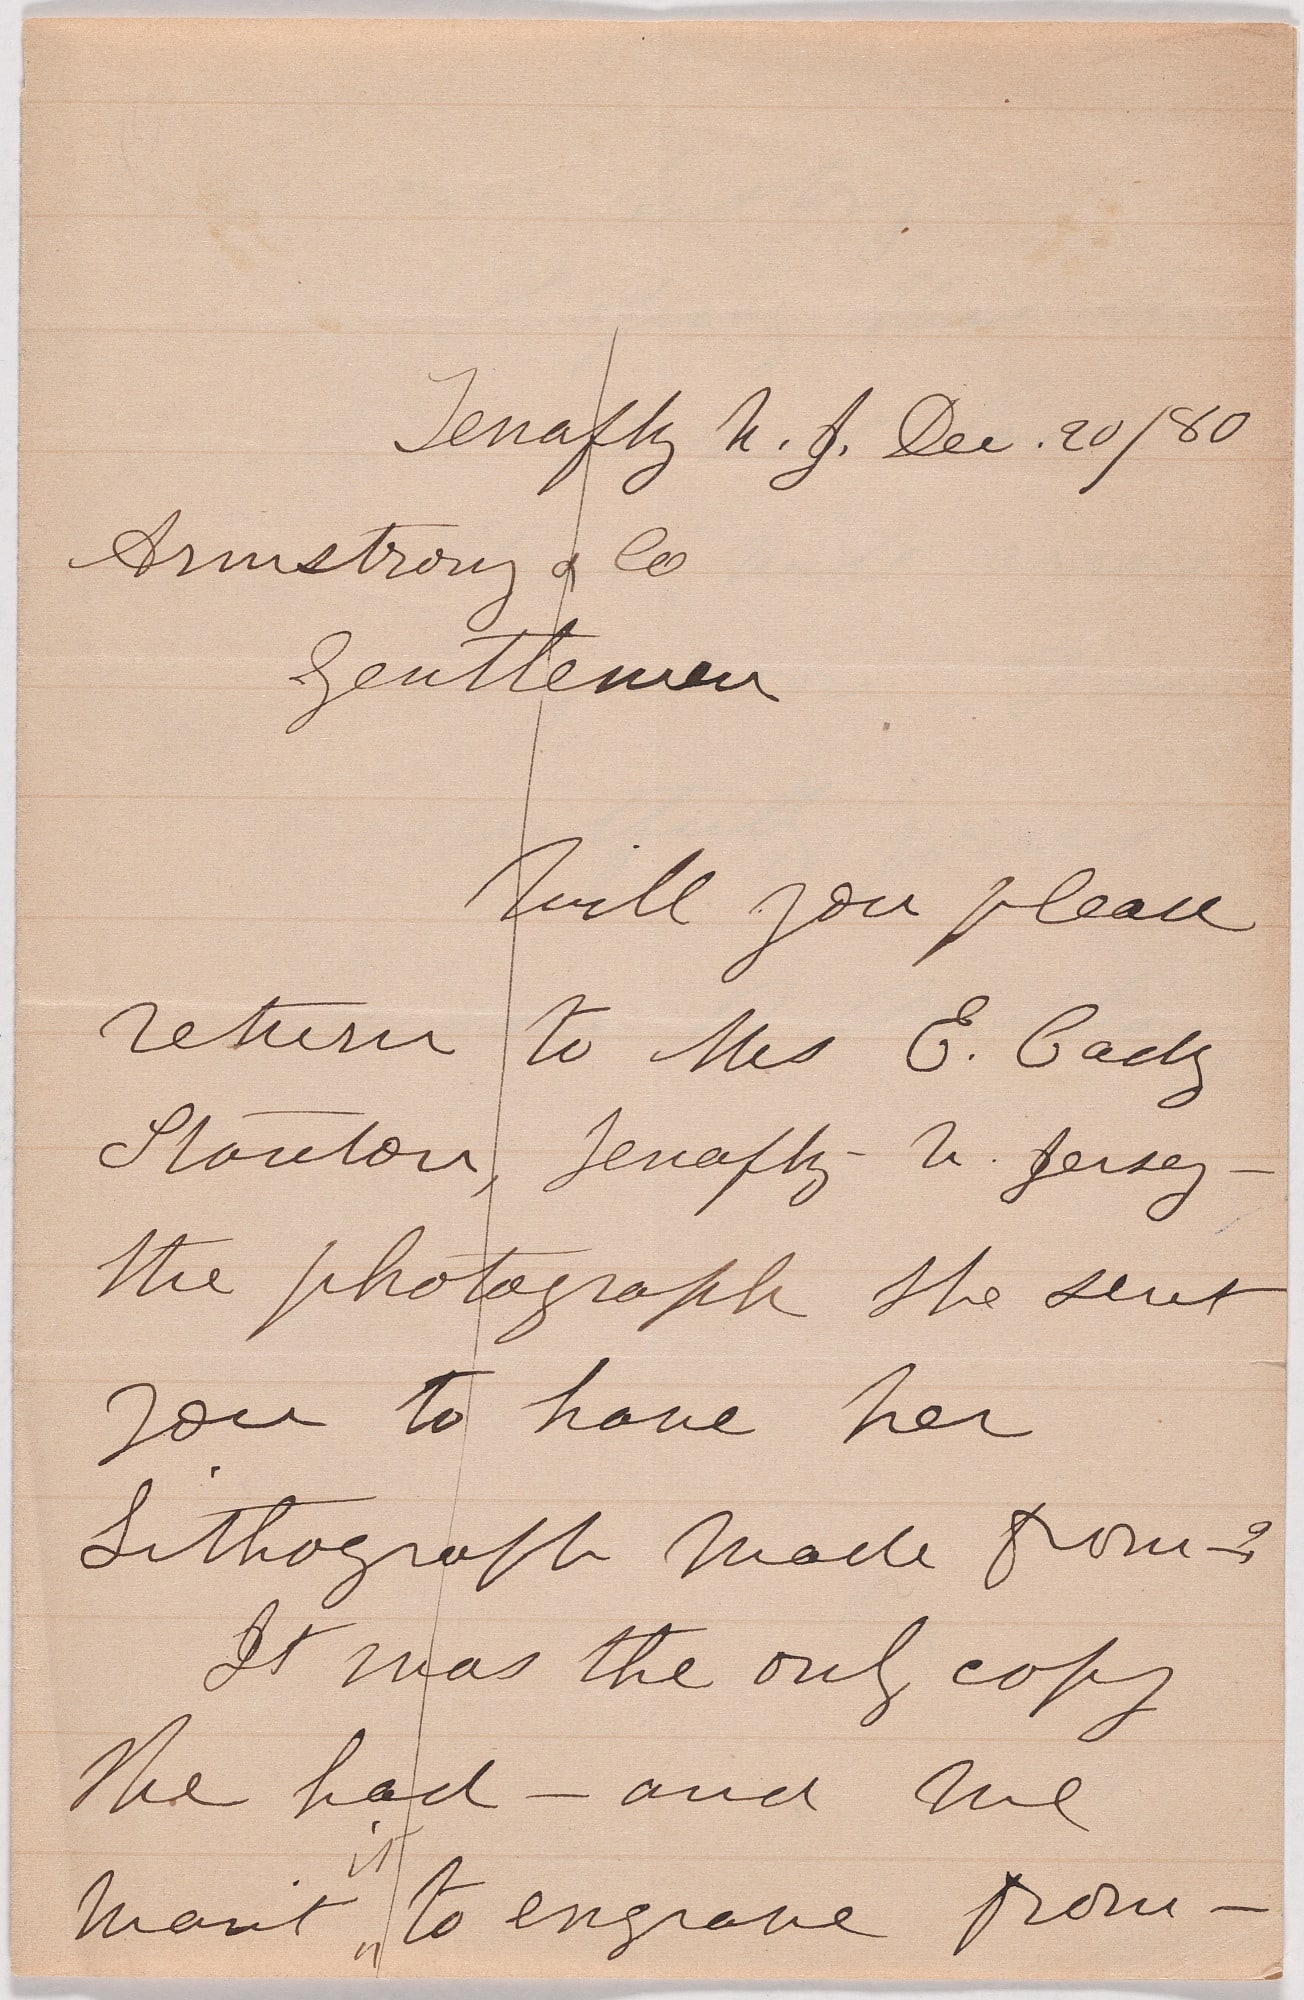 Tenafly N. J. Dec. 20/80
Armstrong & Co
Gentlemen
Will you please
return to Mrs E. Cady
Stanton, Tenafly - N. Jersey -
the photograph she sent
you to have her
Lithograph made from - ?
It was the only copy
she had - and we
it
want " to engrave from -